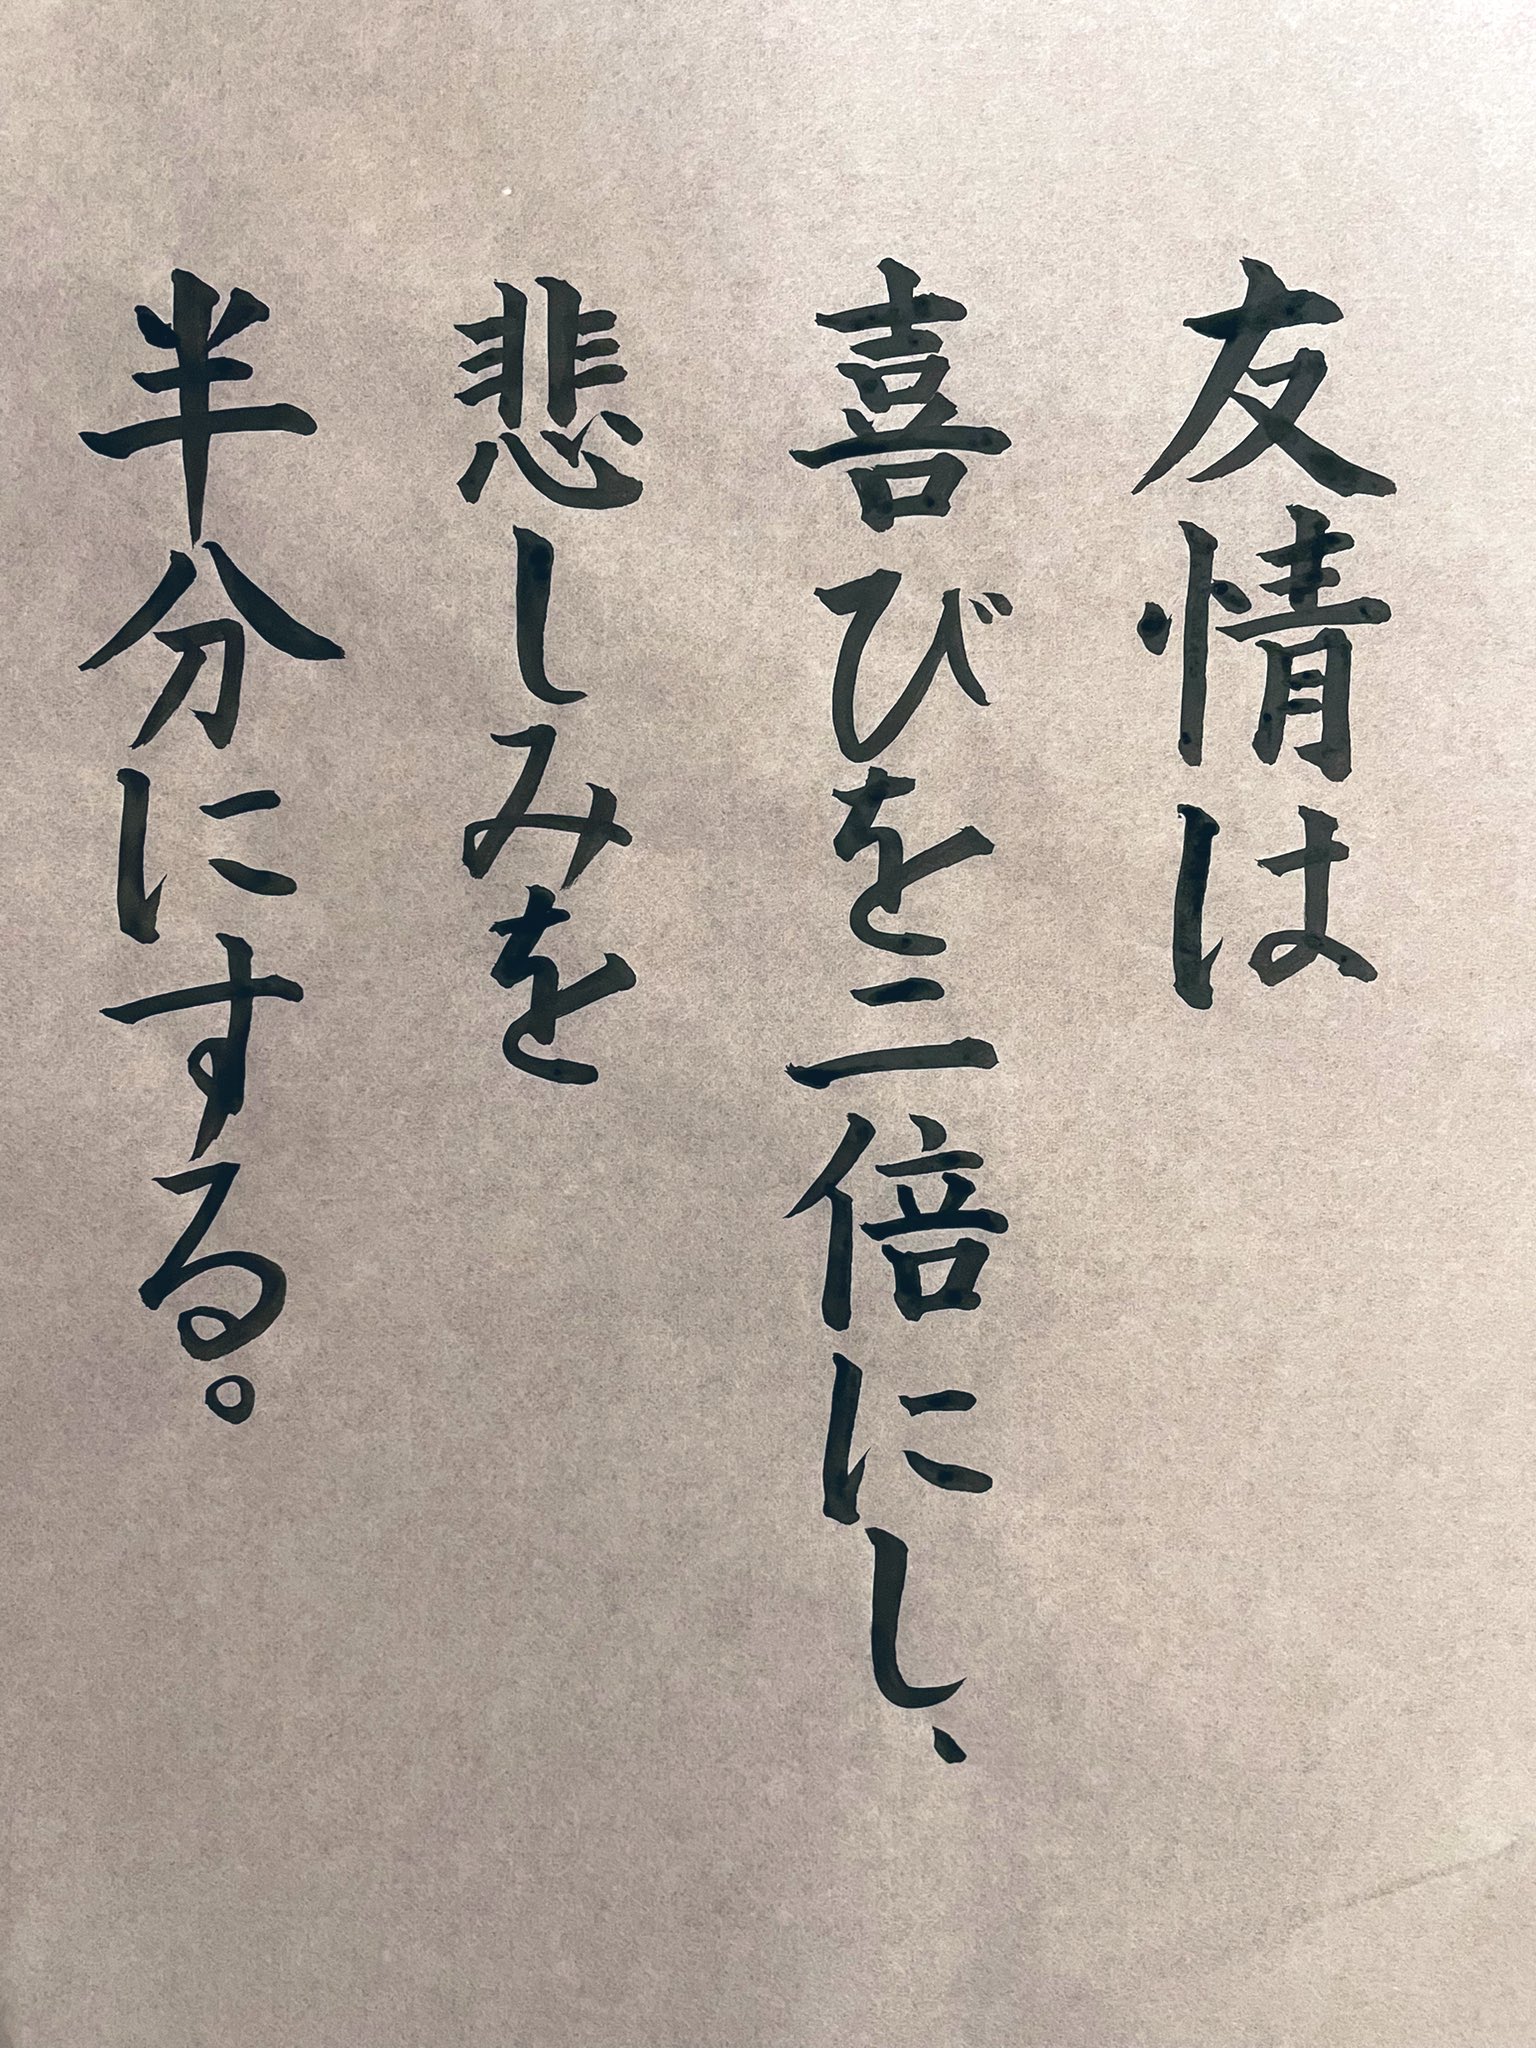 友情は
喜びを二倍にし、
悲しみを
半分にする。